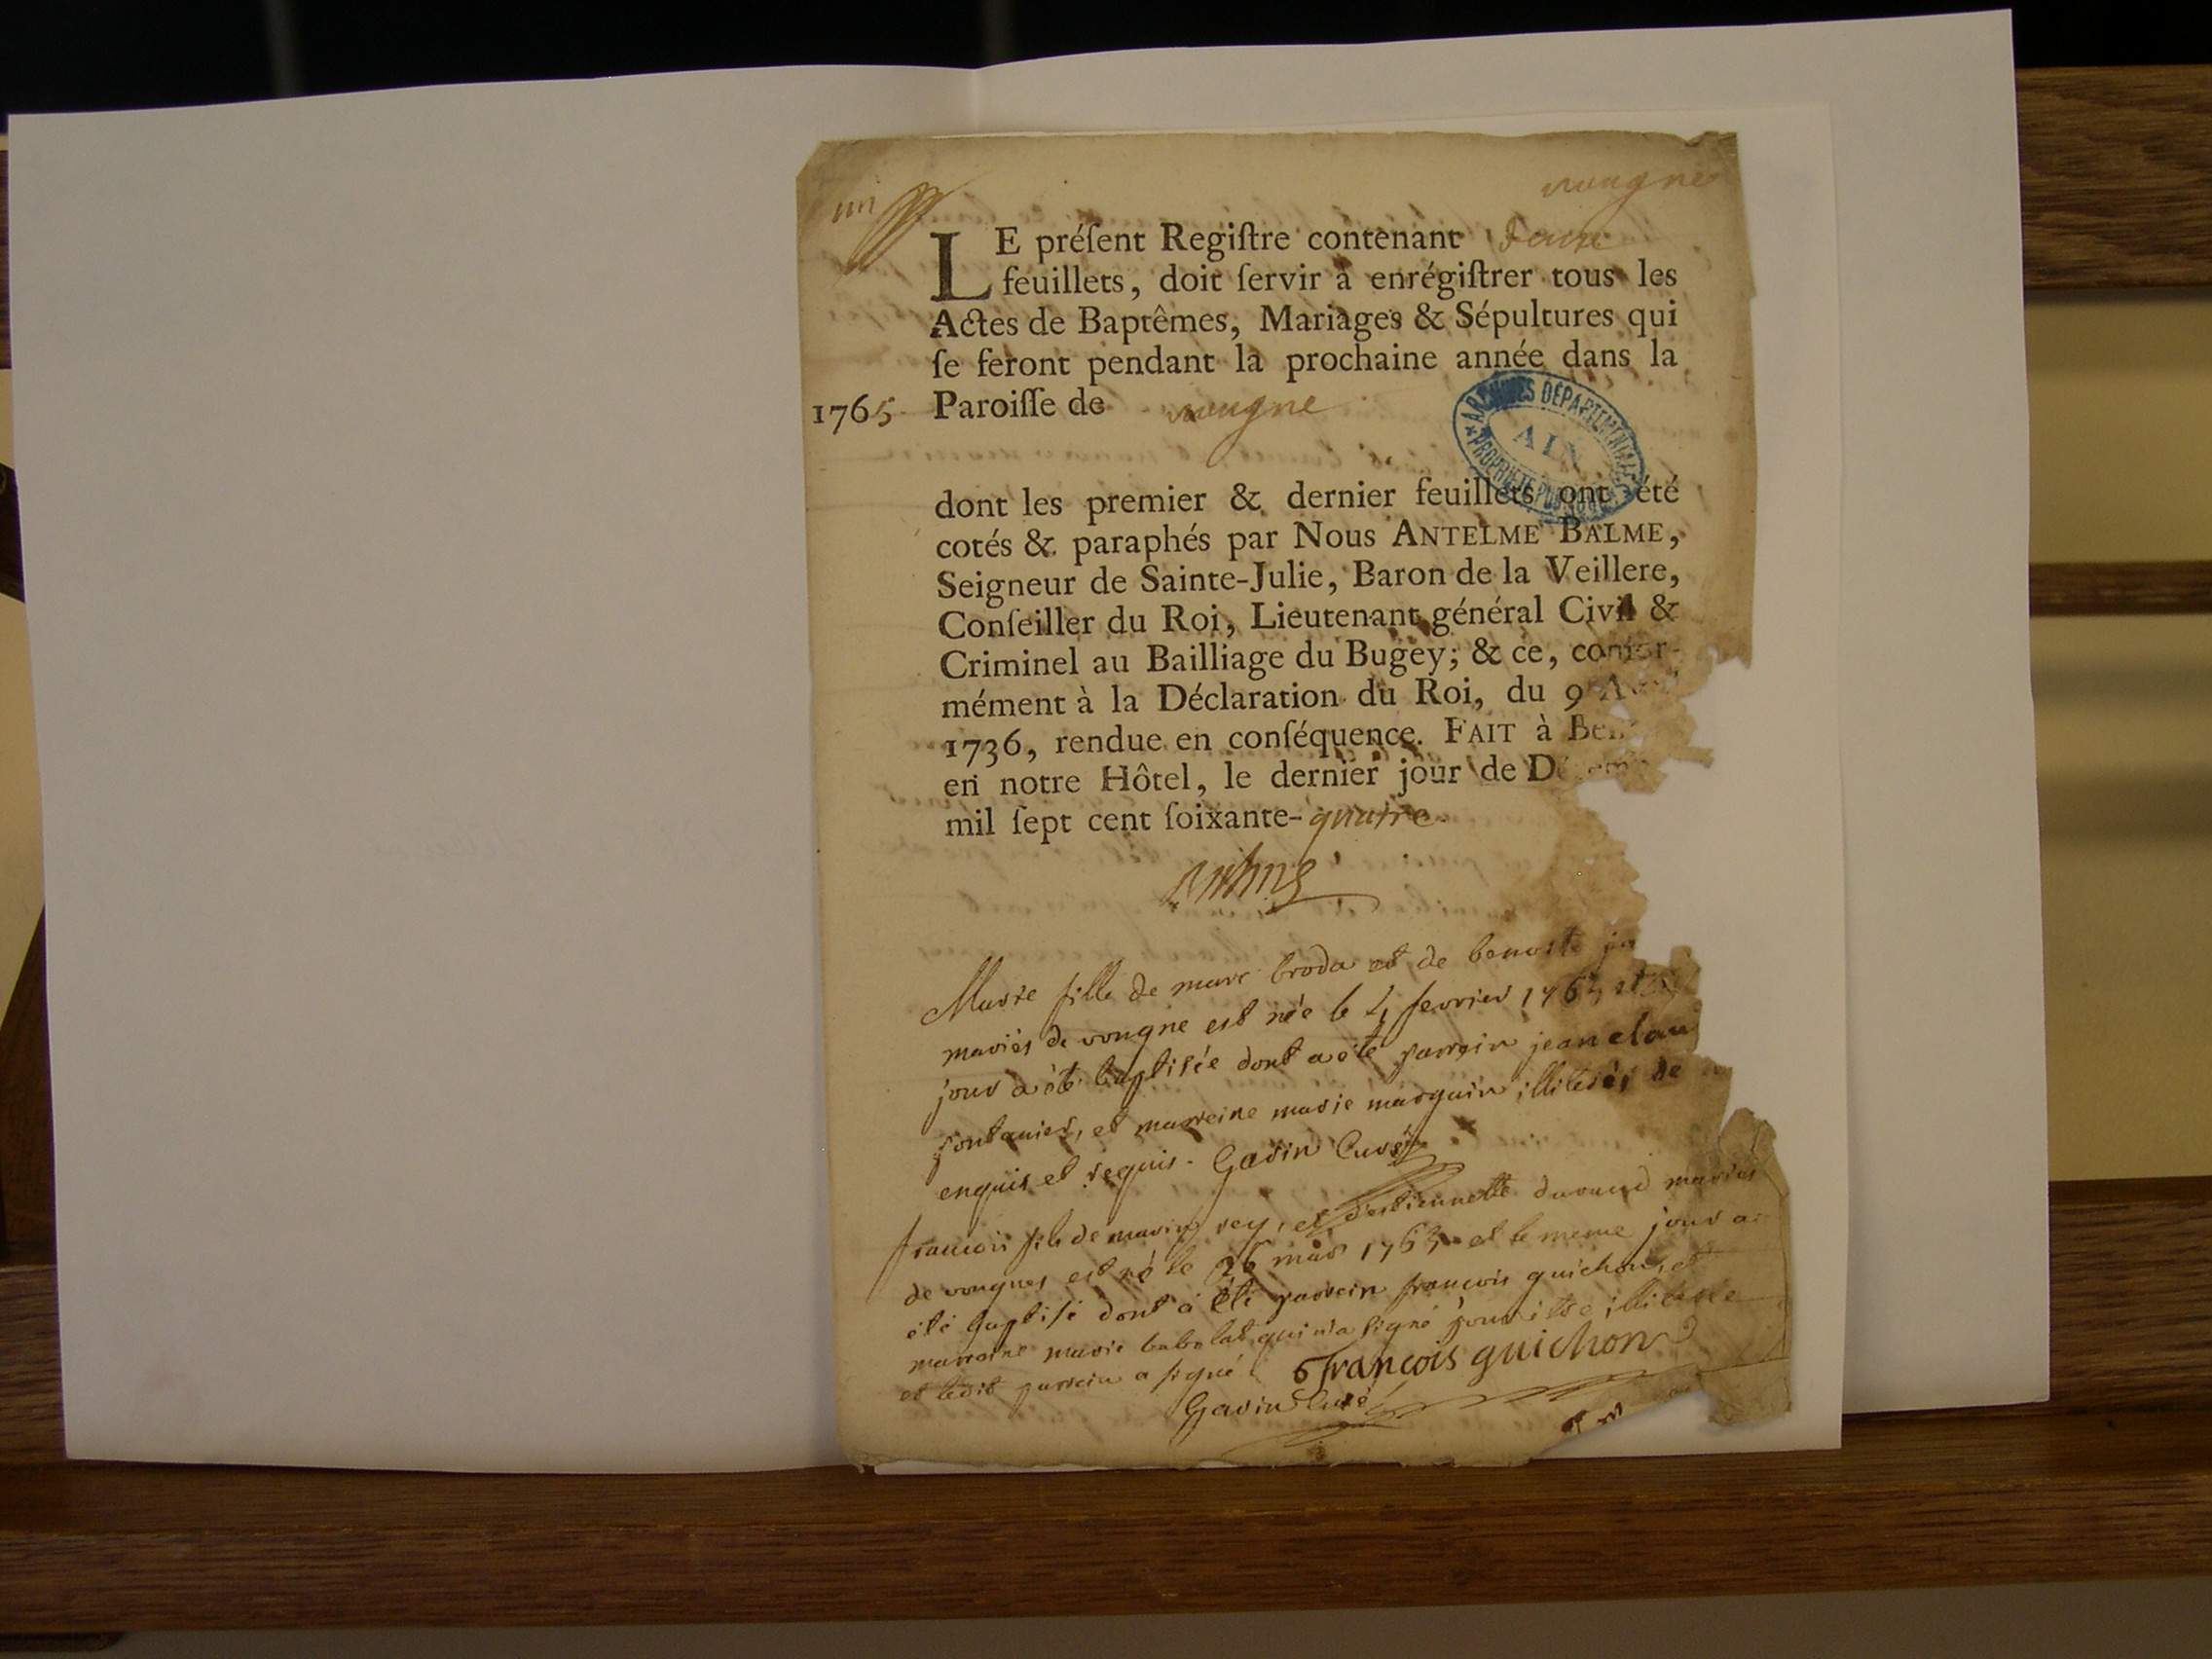 un
vougne
LE préſent Regiſtre contenant deux
feuillets, doit ſervir à enrégiſtrer tous les
Actes de Baptêmes, Mariages & Sépultures qui
ſe feront pendant la prochaine année dans la
1765 Paroiſſe de vougne
ARCHIVES DÉPARTEMENTALES
AIN
PROPRIÉTÉ PUBLIQUE
dont les premier & dernier feuillets ont été
cotés & paraphés par Nous ANTELME BALME,
Seigneur de Sainte-Julie, Baron de la Veillere,
Conſeiller du Roi, Lieutenant général Civil &
Criminel au Bailliage du Bugey; & ce, confor-
mément à la Déclaration du Roi, du 9 A
1736, rendue en conſéquence. FAIT à Bel
en notre Hôtel, le dernier jour de Décem
mil ſept cent ſoixante-quatre.
Balme
Marie fille de marc broda et de benoite
mariés de vougne est née le 4 fevrier 1765 et
jour a été baptisée dont a été parrein jean clau
fontanier, et marreine marie marquin illiterés de
enquis et requis. Gavin Curé
francois fils de marin rey, et d'estiennette durand mariés
de vougnes est né le 26 mars 1765 et le meme jour a
été baptisé dont a été parrein françois guichon, et
marreine marie babolat qui n'a signé pour etre illiterée
et ledit parrein a signé françois guichon
Gavin Curé